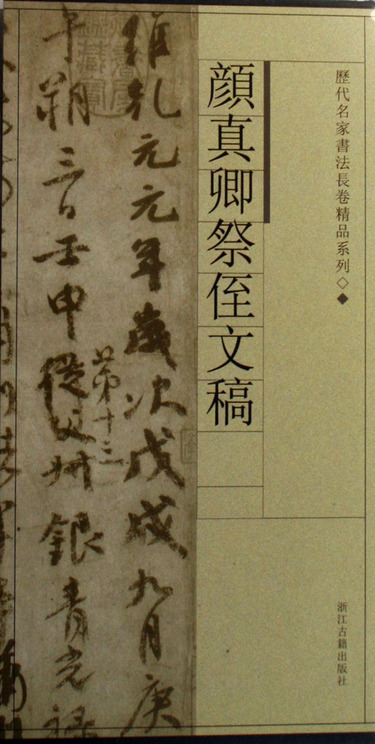 歷代名家書法長卷精品系列◇◆
顏真卿祭侄文稿
浙江古籍出版社
維乾元元年歲次戊戌九月庚
午朔三日壬申從父
第十三
銀青光祿